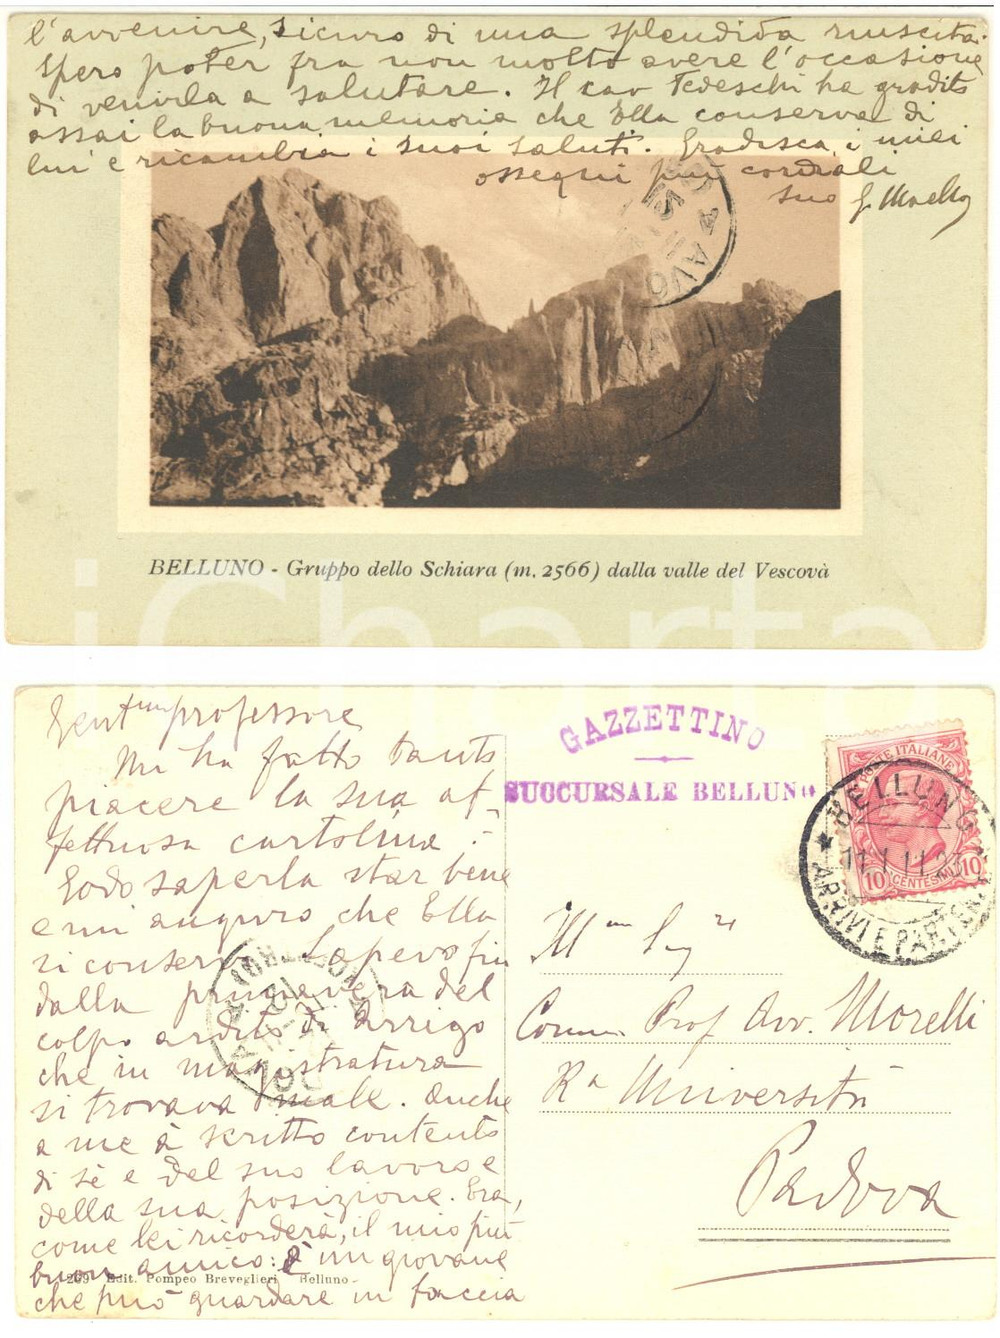 l'avvenire, sicuro di una splendida riuscita.
Spero poter fra non molto avere l'occasione
di venirla a salutare. Il cav Tedeschi ha gradito
assai la buona memoria che Ella conserva di
lui e ricambia i suoi saluti. Gradisca i miei
ossequi più cordiali
suo G.
BELLUNO - Gruppo dello Schiara (m. 2566) dalla valle del Vescovà
iCharta
Gent.mo professore
Mi ha fatto tanto
piacere la sua af-
fettuosa cartolina.
Godo saperla star bene
e mi auguro che Ella
si conservi. Sapevo fin
dalla primavera del
colpo ardito di Arrigo
che in magistratura
si trovava male. Anche
a me à scritto contento
di sè e del suo lavoro e
della sua posizione. Era,
come lei ricorderà, il mio più
buon amico: è un giovane
che può guardare in faccia
269 Edit. Pompeo Breveglieri - Belluno
GAZZETTINO
SUCCURSALE BELLUNO
POSTE ITALIANE
10 CENTESIMI 10
BELLUNO
11.1.11.23
ARRIVI E PARTEN.
Ill.mo Sig.r
Comm. Prof. Avv. Morelli
R.a Università
Padova